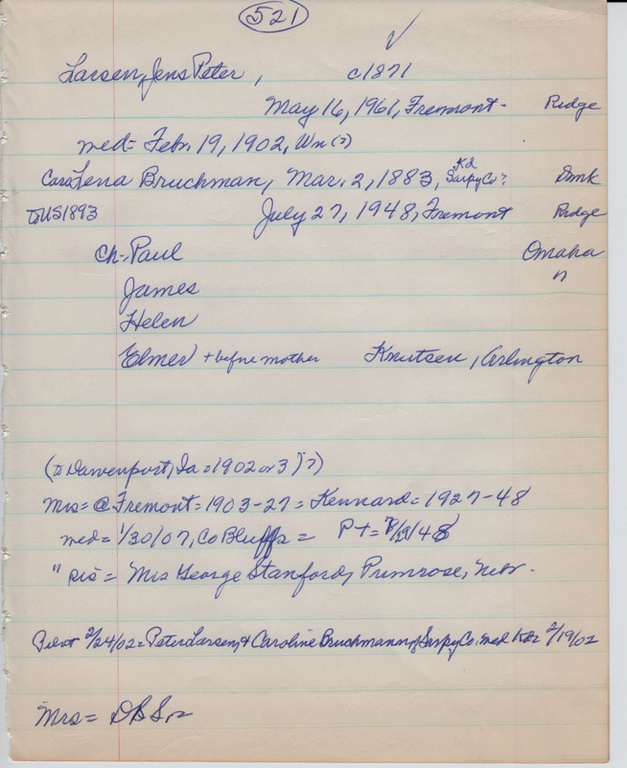 521
Larsen, Jens Peter, c1871
May 16, 1961, Fremont - Ridge
med = Febr. 19, 1902, Wn (?)
Caro Lena Bruchman, Mar. 2, 1883, Kd SarpyCo? Dmk
to US 1893 July 27, 1948, Fremont Ridge
Ch - Paul Omaha
James "
Helen
Elmer + before mother Knutsen, Arlington
(to Davenport, Ia = 1902 or 3 (?)
Mrs = @ Fremont = 1903-27 = Kennard = 1927-48
med = 1/30/07, Co Bluffs = Pt = 48
" sis = Mrs George Stanford, Primrose, Nebr.
Pilot 2/24/02 = Peter Larsen, & Caroline Bruchmann, of Sarpy Co. med 2/19/02
Mrs = DBS